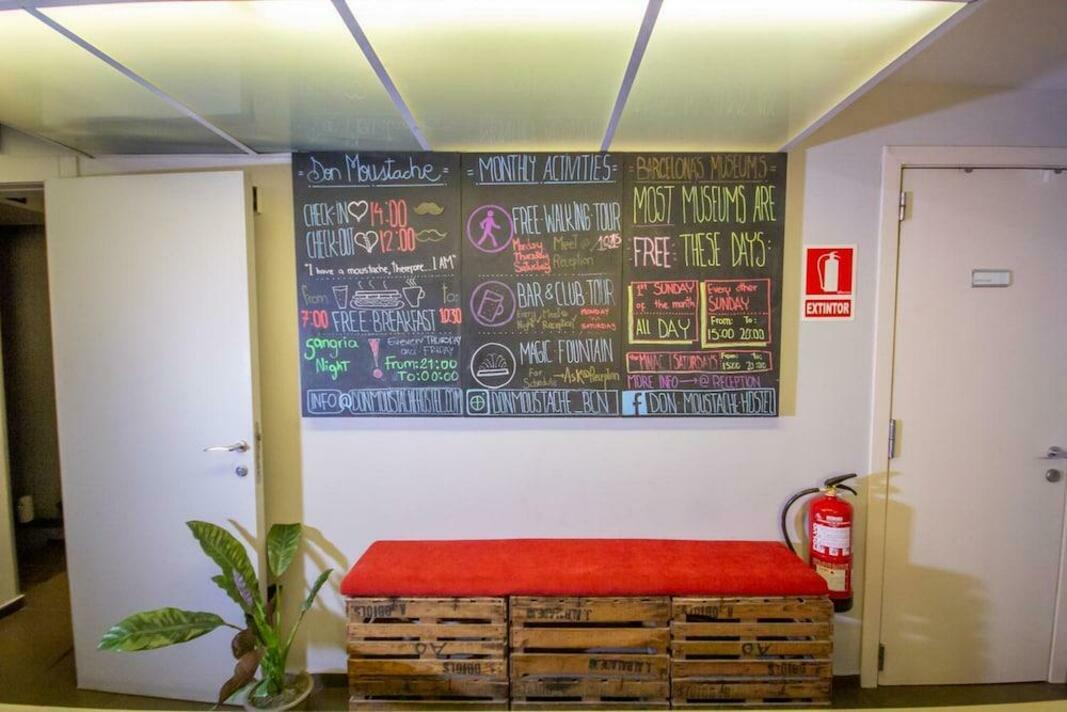 Don Moustache
CHECK-IN 14:00
CHECK-OUT 12:00
"I have a moustache, therepore... I AM"
from to:
7:00 FREE BREAKFAST 10:30
Sangria Night ! Every THURSDAY and FRIDAY
From: 21:00
To: 00:00
INFO@DONMOUSTACHEHOSTEL.COM
MONTHLY ACTIVITIES
FREE WALKING TOUR
Monday Thursday Saturday
Meet @ Reception
BAR & CLUB TOUR
Every Night Meet @ Reception
MONDAY SATURDAYS
MAGIC FOUNTAIN
For Schedule → Ask @ Reception
DONMOUSTACHE_BCN
BARCELONA'S MUSEUMS
MOST MUSEUMS ARE
FREE THESE DAYS:
1st SUNDAY
of the month
ALL DAY
Every other
SUNDAY
From: To:
15:00 20:00
the MNAC SATURDAYS From: To:
15:00 20:00
MORE INFO → @ RECEPTION
f DON-MOUSTACHE-HOSTEL
EXTINTOR
A. OBIOLS
OBIOLS